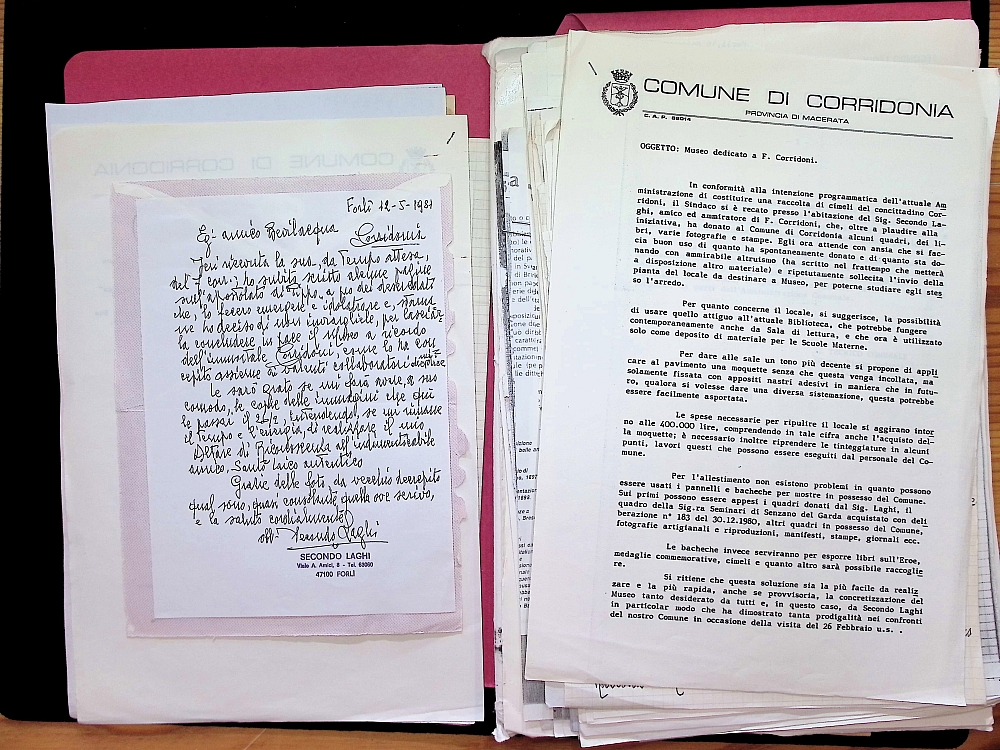 Forlì 12-5-1981
Eg. amico Bevilacqua Corridonia
Ieri ricevuta la sua, da tempo attesa,
del 7 corr.; ho subito scritto alcune pagine
sull'apostolato di Pippo, a pro dei diseredati
che, lo fecero emergere e
ne ho deciso di non
la concludere in pace il museo a ricordo
dell'immortale Corridoni, come lo ha con
cepito assieme ai valenti collaboratori
Le sarò grato se mi farà avere, a suo
comodo, le copie delle immagini che qui
le passai il 26/2, intendendo, se mi rimane
il tempo e l'energia, di realizzare il mio
Altare di Riconoscenza all'indimenticabile
amico, Santo laico autentico
Grazie delle foto, da vecchio decrepito
qual sono, quasi consolante quella ove scrivo,
e la saluto cordialmente
Secondo Laghi
SECONDO LAGHI
Viale A. Amici, 8 - Tel. 63060
47100 FORLÌ
COMUNE DI CORRIDONIA
PROVINCIA DI MACERATA
C. A. P. 62014
OGGETTO: Museo dedicato a F. Corridoni.
In conformità alla intenzione programmatica dell'attuale Am
ministrazione di costituire una raccolta di cimeli del concittadino Cor-
ridoni, il Sindaco si è recato presso l'abitazione del Sig. Secondo La-
ghi, amico ed ammiratore di F. Corridoni, che, oltre a plaudire alla
iniziativa, ha donato al Comune di Corridonia alcuni quadri, dei li-
bri, varie fotografie e stampe. Egli ora attende con ansia che si fac-
cia buon uso di quanto ha spontaneamente donato e di quanto sta do-
nando con ammirabile altruismo (ha scritto nel frattempo che metterà
a disposizione altro materiale) e ripetutamente sollecita l'invio della
pianta del locale da destinare a Museo, per poterne studiare egli stes
so l'arredo.
Per quanto concerne il locale, si suggerisce, la possibilità
di usare quello attiguo all'attuale Biblioteca, che potrebbe fungere
contemporaneamente anche da Sala di lettura, e che ora è utilizzato
solo come deposito di materiale per le Scuole Materne.
Per dare alle sale un tono più decente si propone di appli
care al pavimento una moquette senza che questa venga incollata, ma
solamente fissata con appositi nastri adesivi in maniera che in futu-
ro, qualora si volesse dare una diversa sistemazione, questa potrebbe
essere facilmente asportata.
Le spese necessarie per ripulire il locale si aggirano intor
no alle 400.000 lire, comprendendo in tale cifra anche l'acquisto del-
la moquette; è necessario inoltre riprendere le tinteggiature in alcuni
punti, lavori questi che possono essere eseguiti dal personale del Co-
mune.
Per l'allestimento non esistono problemi in quanto possono
essere usati i pannelli e bacheche per mostre in possesso del Comune.
Sui primi possono essere appesi i quadri donati dal Sig. Laghi, il
quadro della Sig.ra Seminari di Senzano del Garda acquistato con deli
berazione n° 183 del 30.12.1980, altri quadri in possesso del Comune,
fotografie artigianali e riproduzioni, manifesti, stampe, giornali ecc.
Le bacheche invece serviranno per esporre libri sull'Eroe,
medaglie commemorative, cimeli e quanto altro sarà possibile raccoglie
re.
Si ritiene che questa soluzione sia la più facile da realiz
zare e la più rapida, anche se provvisoria, la concretizzazione del
Museo tanto desiderato da tutti e, in questo caso, da Secondo Laghi
in particolar modo che ha dimostrato tanta prodigalità nei confronti
del nostro Comune in occasione della visita del 26 Febbraio u.s. .